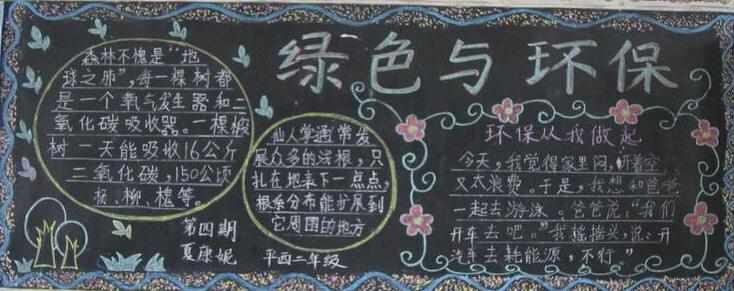 绿色与环保
森林不愧是“地
球之肺”，每一棵树都
是一个氧气发生器和二
氧化碳吸收器。一棵椴
树一天能吸收16公斤
二氧化碳，150公顷
杨、柳、槐等。
第四期
夏康妮
仙人掌通常发
展众多的浅根，只
扎在地表下一点点，
根系分布能扩展到
它周围的地方
平西二年级
环保从我做起
今天，我觉得家里闷，开着空
又太浪费。于是，我想和爸爸
一起去游泳。爸爸说：“我们
开车去吧。”我摇摇头，说：开
汽车去耗能源，不行”